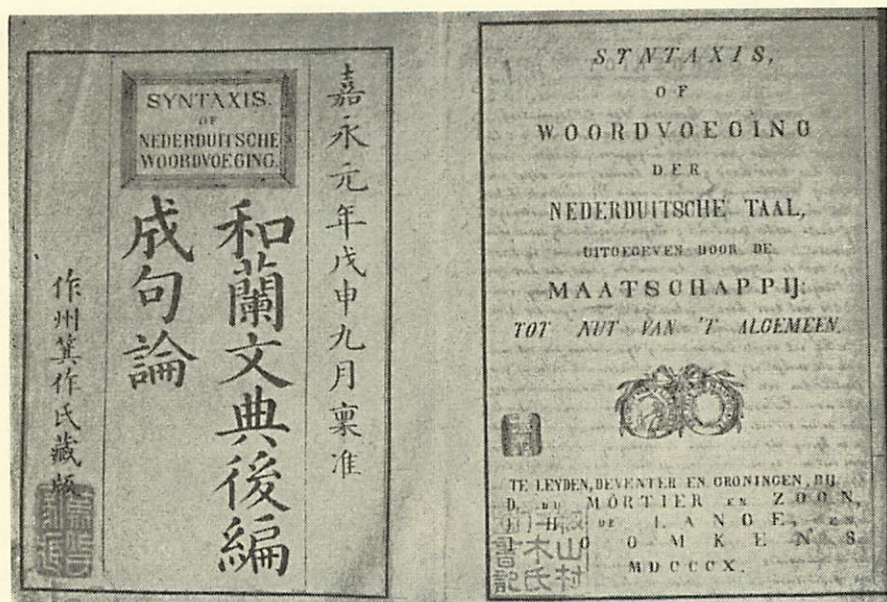 嘉永元年戊申九月稟准
SYNTAXIS.
OF
NEDERDUITSCHE
WOORDVOEGING.
和蘭文典後編
成句論
作州箕作氏藏版
SYNTAXIS,
OF
WOORDVOEGING
DER
NEDERDUITSCHE TAAL,
UITGEGEVEN DOOR DE
MAATSCHAPPIJ:
TOT NUT VAN 'T ALGEMEEN.
TE LEYDEN, DEVENTER EN GRONINGEN, BIJ
D. DU MORTIER EN ZOON,
H. DE LANGE, EN
OOMKENS
MDCCCX.